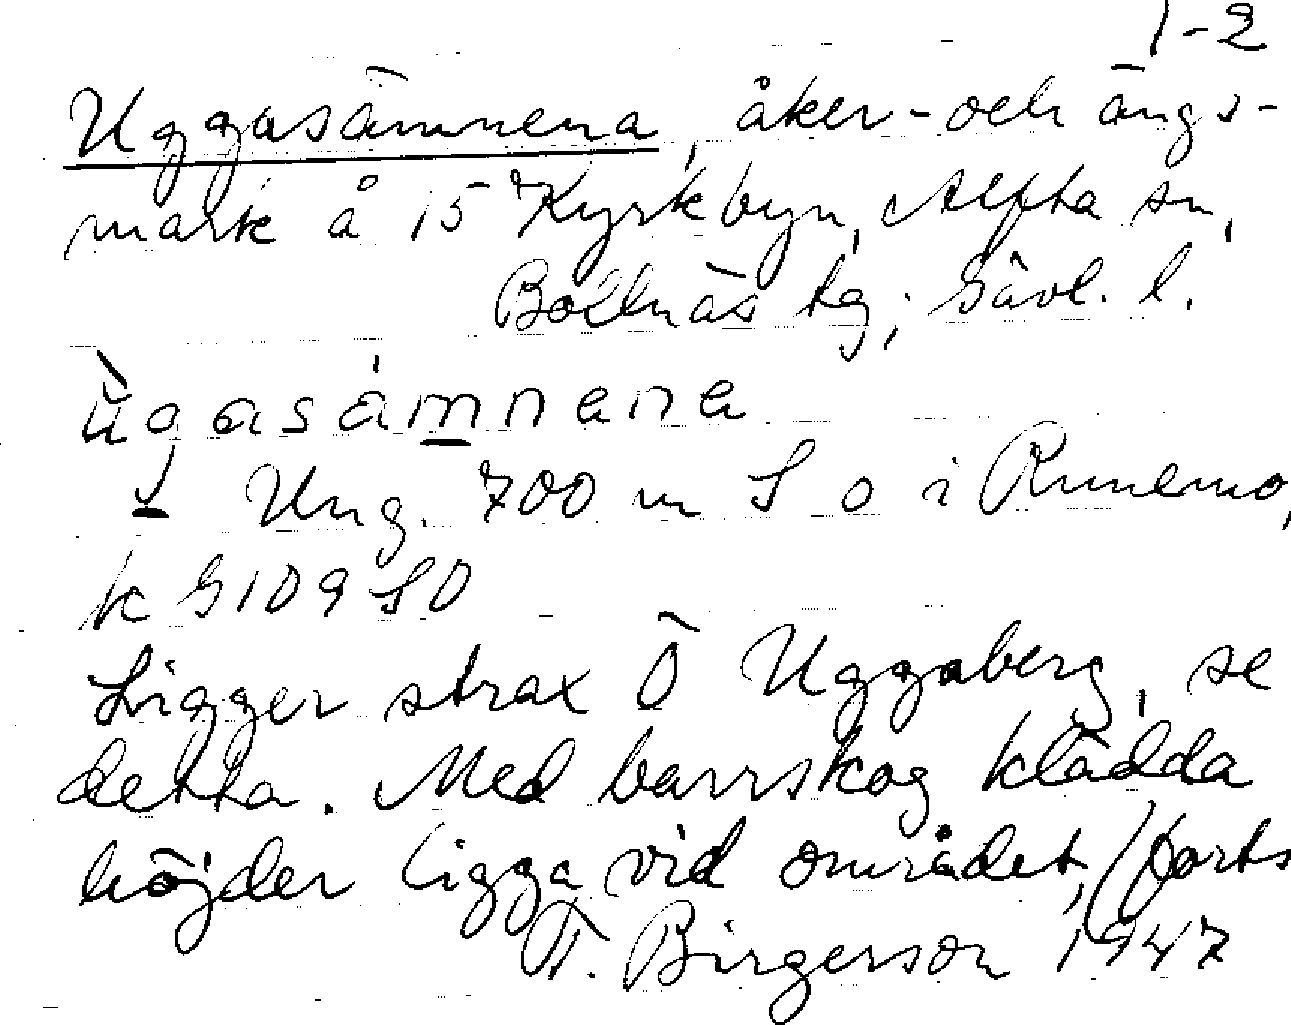 1-2
Uggasämnena, åker- och ängs-
mark å 15 Kyrkbyn, Alfta sn,
Bollnäs tg, Gävl. l.
ùgasámnena
Ung. 700 m S o i Runemo,
k G109 SO
Ligger strax Ö Uggaberg, se
detta. Med barrskog klädda
höjder ligga vid området, (forts
F. Birgerson 1947